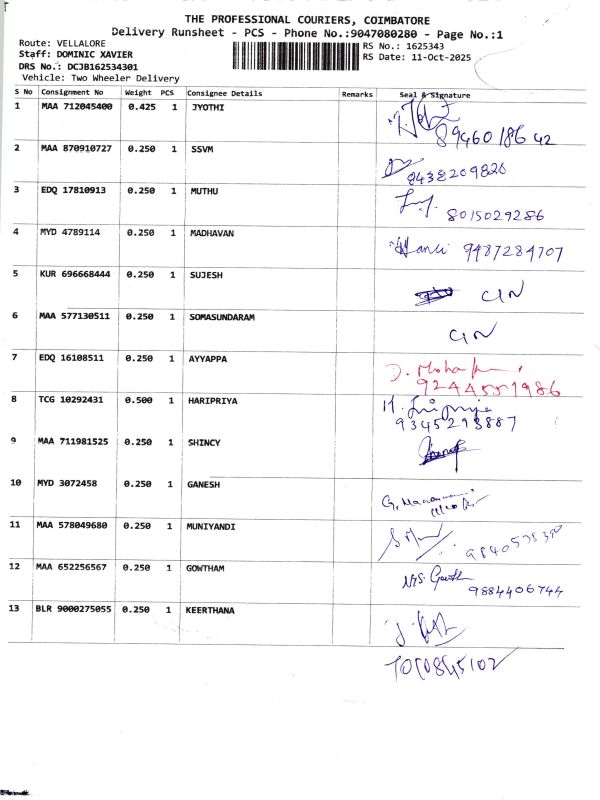 THE PROFESSIONAL COURIERS, COIMBATORE
Delivery Runsheet - PCS - Phone No.:9047080280 - Page No.:1
Route: VELLALORE
RS No.: 1625343
Staff: DOMINIC XAVIER
RS Date: 11-Oct-2025
DRS No.: DCJB162534301
Vehicle: Two Wheeler Delivery
S No Consignment No Weight PCS Consignee Details Remarks Seal & Signature
1 MAA 712045400 0.425 1 JYOTHI
8946018642
2 MAA 870910727 0.250 1 SSVM
8438209820
3 EDQ 17810913 0.250 1 MUTHU
8015029286
4 MYD 4789114 0.250 1 MADHAVAN
9487284707
5 KUR 696668444 0.250 1 SUJESH
6 MAA 577130511 0.250 1 SOMASUNDARAM
7 EDQ 16108511 0.250 1 AYYAPPA
9244551986
8 TCG 10292431 0.500 1 HARIPRIYA
9345293887
9 MAA 711981525 0.250 1 SHINCY
10 MYD 3072458 0.250 1 GANESH
11 MAA 578049680 0.250 1 MUNIYANDI
12 MAA 652256567 0.250 1 GOWTHAM
9884406744
13 BLR 9000275055 0.250 1 KEERTHANA